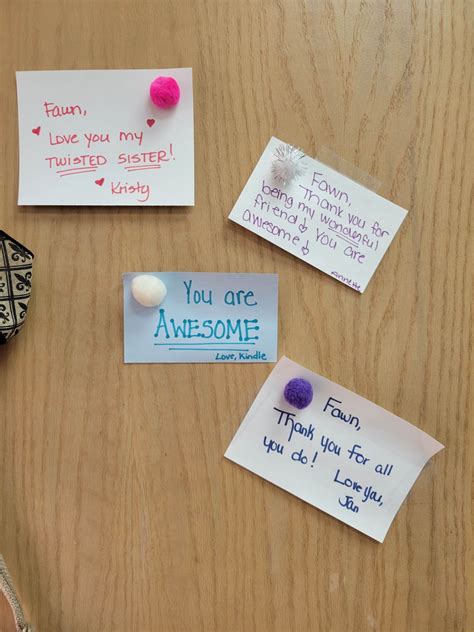 Fawn,
Love you my
TWISTED SISTER!
Kristy
Fawn,
Thank you for
being my wonderful
friend! You are
awesome!
You are
AWESOME
Love, Kindle
Fawn,
Thank you for all
you do!
Love you,
Jan